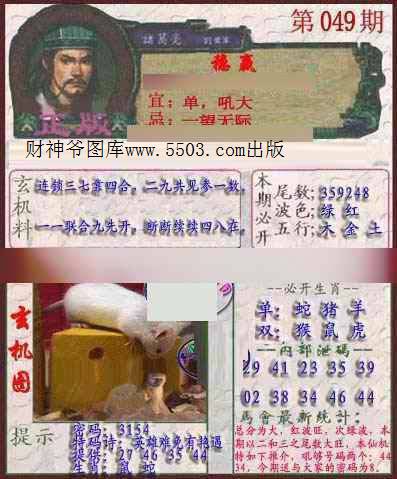 第049期
諸葛亮
穩贏
宜：单，吼大
忌：一望无际
正版
财神爷图库www.5503.com出版
玄机料
连锁三七靠四合，二九共见参一数，
一一联合九先开，断断续续四八在，
本期必开
尾数：359248
波色：绿 红
五行：木 金 土
玄机图
必开生肖
单：蛇 猪 羊
双：猴 鼠 虎
内部泄码
29 41 23 35 39
02 38 34 46 44
馬會最新統計：
总分为大，红波旺，次绿波，本
期以二和三之尾数大旺，本仙机
特如下推介，吼够号码两个：44
34，今期送与大家的密码为8。
提示
密码：3154
特码诗：英雄难免有
提供：27 46 35 44
生肖：鼠 蛇